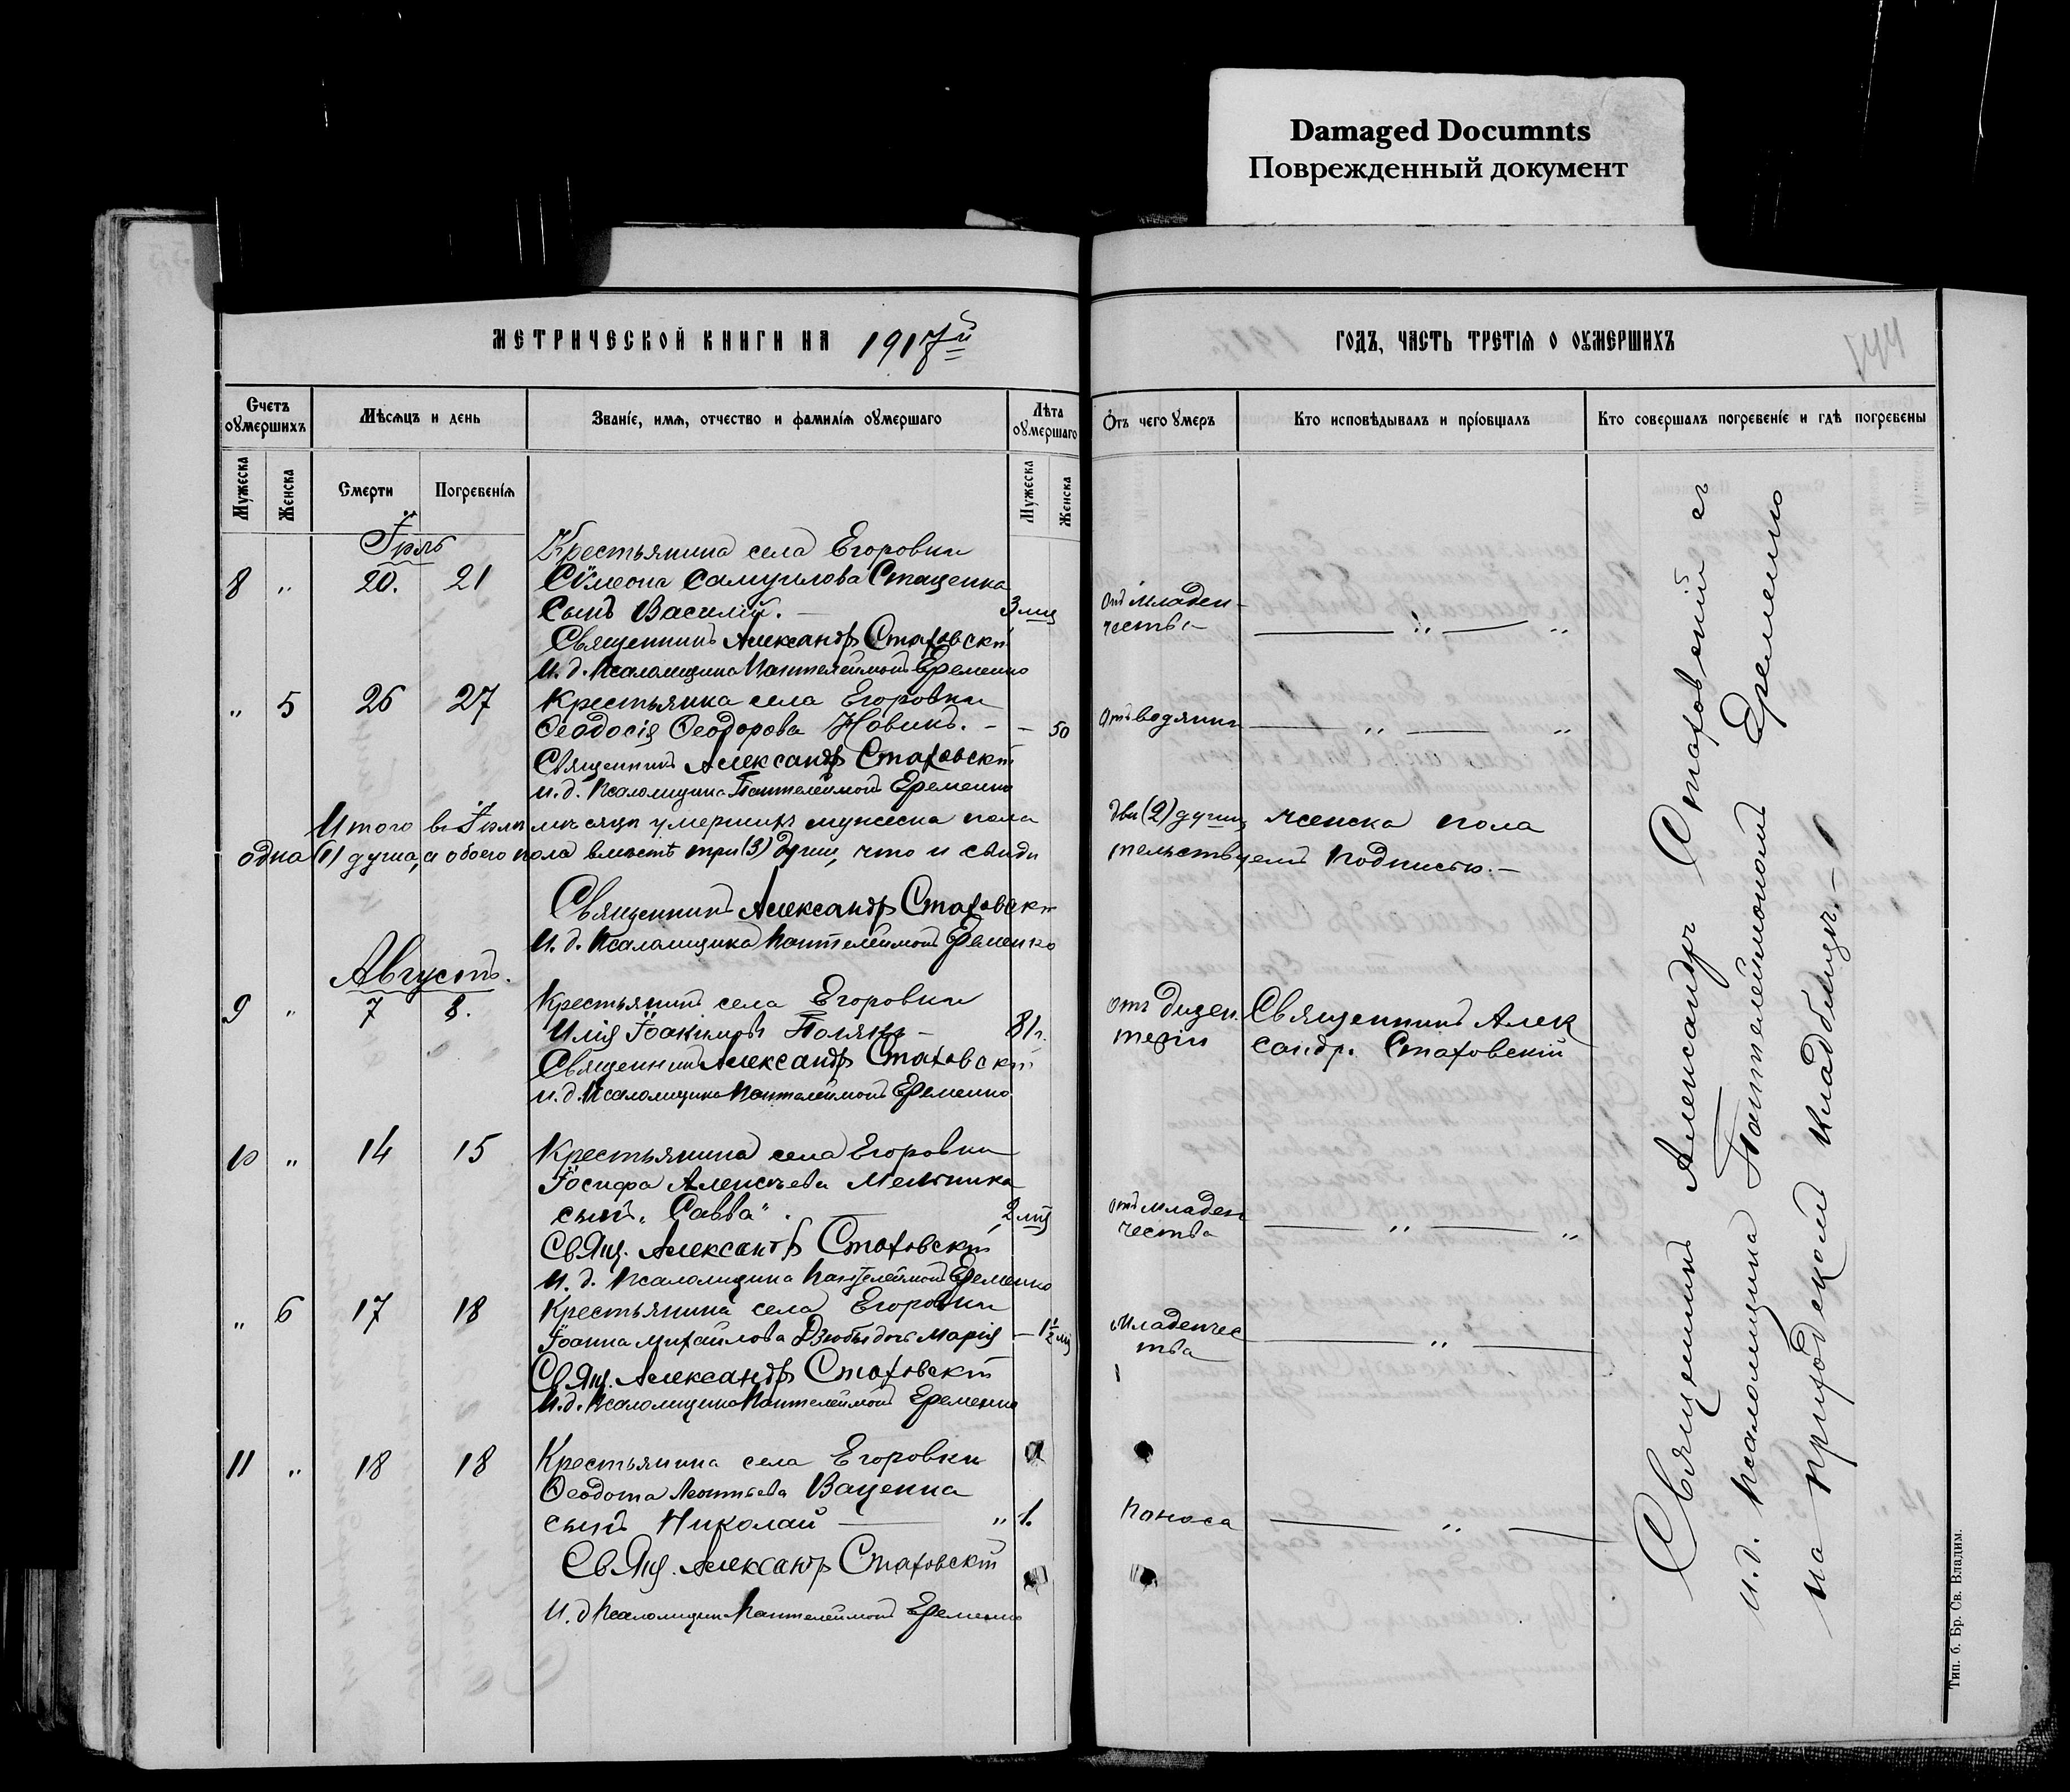 Damaged Documnts
Поврежденный документ
МЕТРИЧЕСКОЙ КНИГИ НА 1917й
ГОДЪ, ЧАСТЬ ТРЕТІЯ О ОУМЕРШИХЪ
Счетъ оумершихъ
Мѣсяцъ и день
Званіе, имя, отчество и фамилія оумершаго
Лѣта оумершаго
Отъ чего умеръ
Кто исповѣдывалъ и пріобщалъ
Кто совершалъ погребеніе и гдѣ погребены
Мужеска
Женска
Смерти
Погребенія
Мужеска
Женска
Іюль
Крестьянина села Егоровки
8 " 20. 21 Сѵмеона Самуилова Стаценка
сынъ Василій. — 3 мц
отъ младен-
чества — " — "
Священникъ Александръ Стаховскій
И. д. Псаломщика Пантелеймонъ Еременко
" 5 26 27 Крестьянка села Егоровки
Ѳеодосія Ѳеодорова Новикъ. — — 50
отъ водянки — " — "
Священникъ Александръ Стаховскій
и. д. Псаломщика Пантелеймонъ Еременко
Итого въ Іюлѣ мѣсяцѣ умершихъ мужеска пола двѣ (2) души, женска пола
одна (1) душа, а обоего пола вмѣстѣ три (3) души, что и свидѣтельствуемъ подписью. —
Священникъ Александръ Стаховскій
И. д. Псаломщика Пантелеймонъ Еременко
Августъ.
9 " 7 8. Крестьянинъ села Егоровки
Илія Іоакимовъ Полякъ — 81 г.
отъ дизен-
теріи
Священникъ Алек
сандръ Стаховскій
Священникъ Александръ Стаховскій
и. д. Псаломщика Пантелеймонъ Еременко
10 " 14 15 Крестьянина села Егоровки
Іосифа Алексѣева Мельника
сынъ „Савва". — 2 мц
отъ младен
чества — " — "
Свящ. Александръ Стаховскій
И. д. Псаломщика Пантелеймонъ Еременко
" 6 17 18 Крестьянина села Егоровки
Іоанна Михайлова Дзюбы дочь Марія — 1½ мц
младенчес
тва — " —
Свящ. Александръ Стаховскій
И. д. Псаломщика Пантелеймонъ Еременко
11 " 18 18 Крестьянина села Егоровки
Ѳеодота Леонтьева Ваценка
сынъ Николай — " 1.
Поноса — " —
Свящ. Александръ Стаховскій
И. д. Псаломщик Пантелеймонъ Еременко
Священникъ Александръ Стаховскій съ
и. д. псаломщика Пантелеймономъ Еременко
на приходскомъ кладбищѣ. —
Тип. б. Бр. Св. Владим.